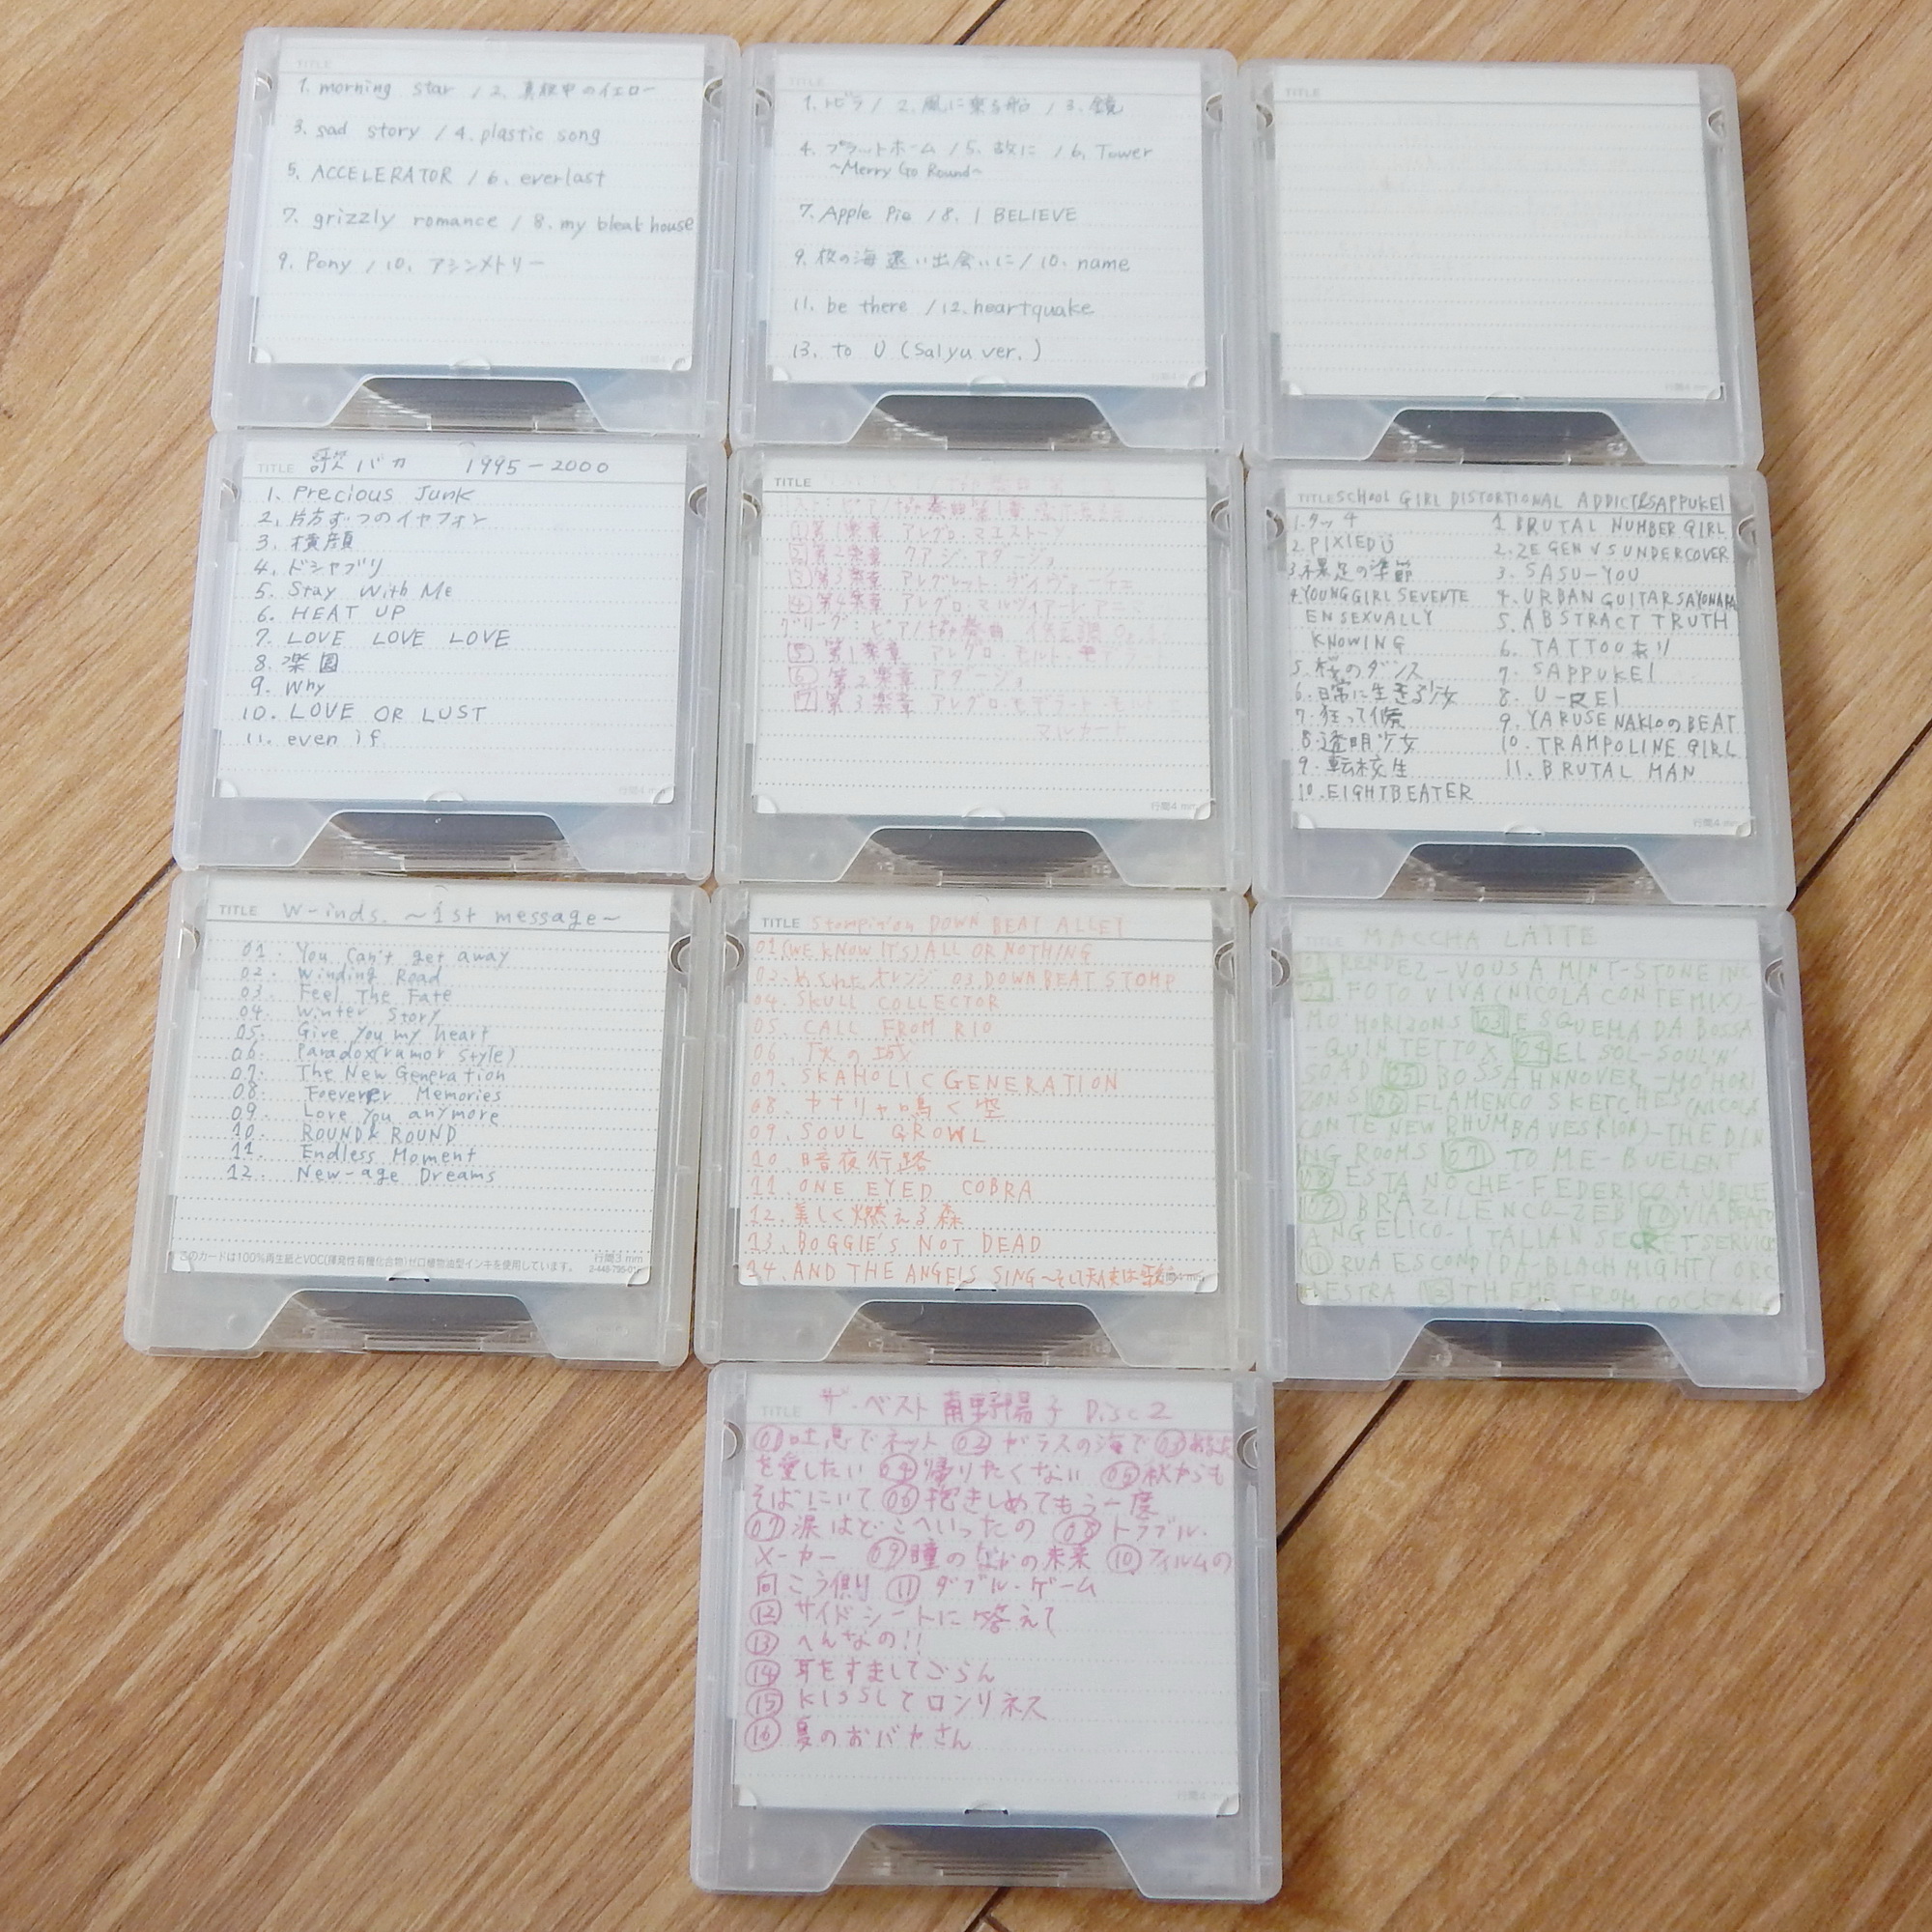 TITLE
1. morning star / 2. 真夜中のイエロー
3. sad story / 4. plastic song
5. ACCELERATOR / 6. everlast
7. grizzly romance / 8. my bleat house
9. Pony / 10. アシンメトリー
TITLE
1. トビラ / 2. 風に乗る船 / 3. 鏡
4. プラットホーム / 5. 故に / 6. Tower
~Merry Go Round~
7. Apple Pie / 8. I BELIEVE
9. 彼の海 遠い出会いに / 10. name
11. be there / 12. heartquake
13. to U (Salyu ver.)
TITLE
行間4 mm
TITLE 歌バカ 1995-2000
1. Precious Junk
2. 片方ずつのイヤフォン
3. 横顔
4. ドシャブリ
5. Stay With Me
6. HEAT UP
7. LOVE LOVE LOVE
8. 楽園
9. Why
10. LOVE OR LUST
11. even if
行間4 mm
TITLE
リスト:ピアノ協奏曲第1番
1 第1楽章 アレグロ・マエストーソ
2 第2楽章 クアジ・アダージョ
3 第3楽章 アレグレット・ヴィヴァーチェ
4 第4楽章 アレグロ・マルツィアーレ・アニ
グリーグ:ピアノ協奏曲 イ短調
5 第1楽章 アレグロ モルト・モデラート
6 第2楽章 アダージョ
7 第3楽章 アレグロ・モデラート・モルト
マルカート
行間4 mm
TITLE SCHOOL GIRL DISTORTIONAL ADDICT SAPPUKEI
1. タッチ
2. PIXIE DÜ
3. 裸足の季節
4. YOUNG GIRL SEVENTE
EN SEXUALLY
KNOWING
5. 桜のダンス
6. 日常に生きる少女
7. 狂って候
8. 透明少女
9. 転校生
10. EIGHTBEATER
1. BRUTAL NUMBER GIRL
2. ZEGEN VS UNDERCOVER
3. SASU-YOU
4. URBAN GUITAR SAYONARA
5. ABSTRACT TRUTH
6. TATTOOあり
7. SAPPUKEI
8. U-REI
9. YARUSE NAKIOのBEAT
10. TRAMPOLINE GIRL
11. BRUTAL MAN
行間4 mm
TITLE W-inds. ~1st message~
01. You Can't get away
02. Winding Road
03. Feel The Fate
04. Winter Story
05. Give you my heart
06. Paradox(rumor style)
07. The New Generation
08. Foeverer Memories
09. Love you anymore
10. ROUND& ROUND
11. Endless Moment
12. New-age Dreams
このカードは100%再生紙とVOC(揮発性有機化合物)ゼロ植物油型インキを使用しています。
行間3 mm
TITLE Stompin'on DOWN BEAT ALLEY
01(WE KNOW IT'S) ALL OR NOTHING
02. めくれたオレンジ 03. DOWN BEAT STOMP
04. SKULL COLLECTOR
05. CALL FROM RIO
06. 火の城
07. SKAHOLIC GENERATION
08. カナリヤ鳴く空
09. SOUL GROWL
10. 暗夜行路
11. ONE EYED COBRA
12. 美しく燃える森
13. BOGGIE'S NOT DEAD
14. AND THE ANGELS SING ~そして天使は歌う
TITLE MACCHA LATTE
01 RENDEZ-VOUS A MINT-STONE INC
02 FOTO VIVA(NICOLA CONTE MIX)-
MO'HORIZONS 03 ESQUEMA DA BOSSA
-QUINTETTO X 04 EL SOL-SOUL'N'
SOAD 05 BOSSA HNNOVER-MO'HORI
ZONS 06 FLAMENCO SKETCHES(NICOLA
CONTE NEW RHUMBA VESRION)-THE DIN
ING ROOMS 07 TO ME-BUELENT
08 ESTA NOCHE-FEDERICO AUBELE
09 BRAZILENCO-ZEB 10 VIA BEATO
ANGELICO-ITALIAN SECRET SERVICE
11 RUA ESCONDIDA-BLACH MIGHTY ORC
HESTRA 12 THEME FROM COCKTAIL
TITLE ザ・ベスト 南野陽子 Disc2
01 吐息でネット 02 ガラスの海で 03
を愛したい 04 帰りたくない 05 秋からも
そばにいて 06 抱きしめてもう一度
07 涙はどこへいったの 08 トラブル・
メーカー 09 瞳のなかの未来 10 フィルムの
向こう側 11 ダブル・ゲーム
12 サイドシートに答えて
13 へんなの!!
14 耳をすましてごらん
15 KISSしてロンリネス
16 夏のおバカさん
行間4 mm